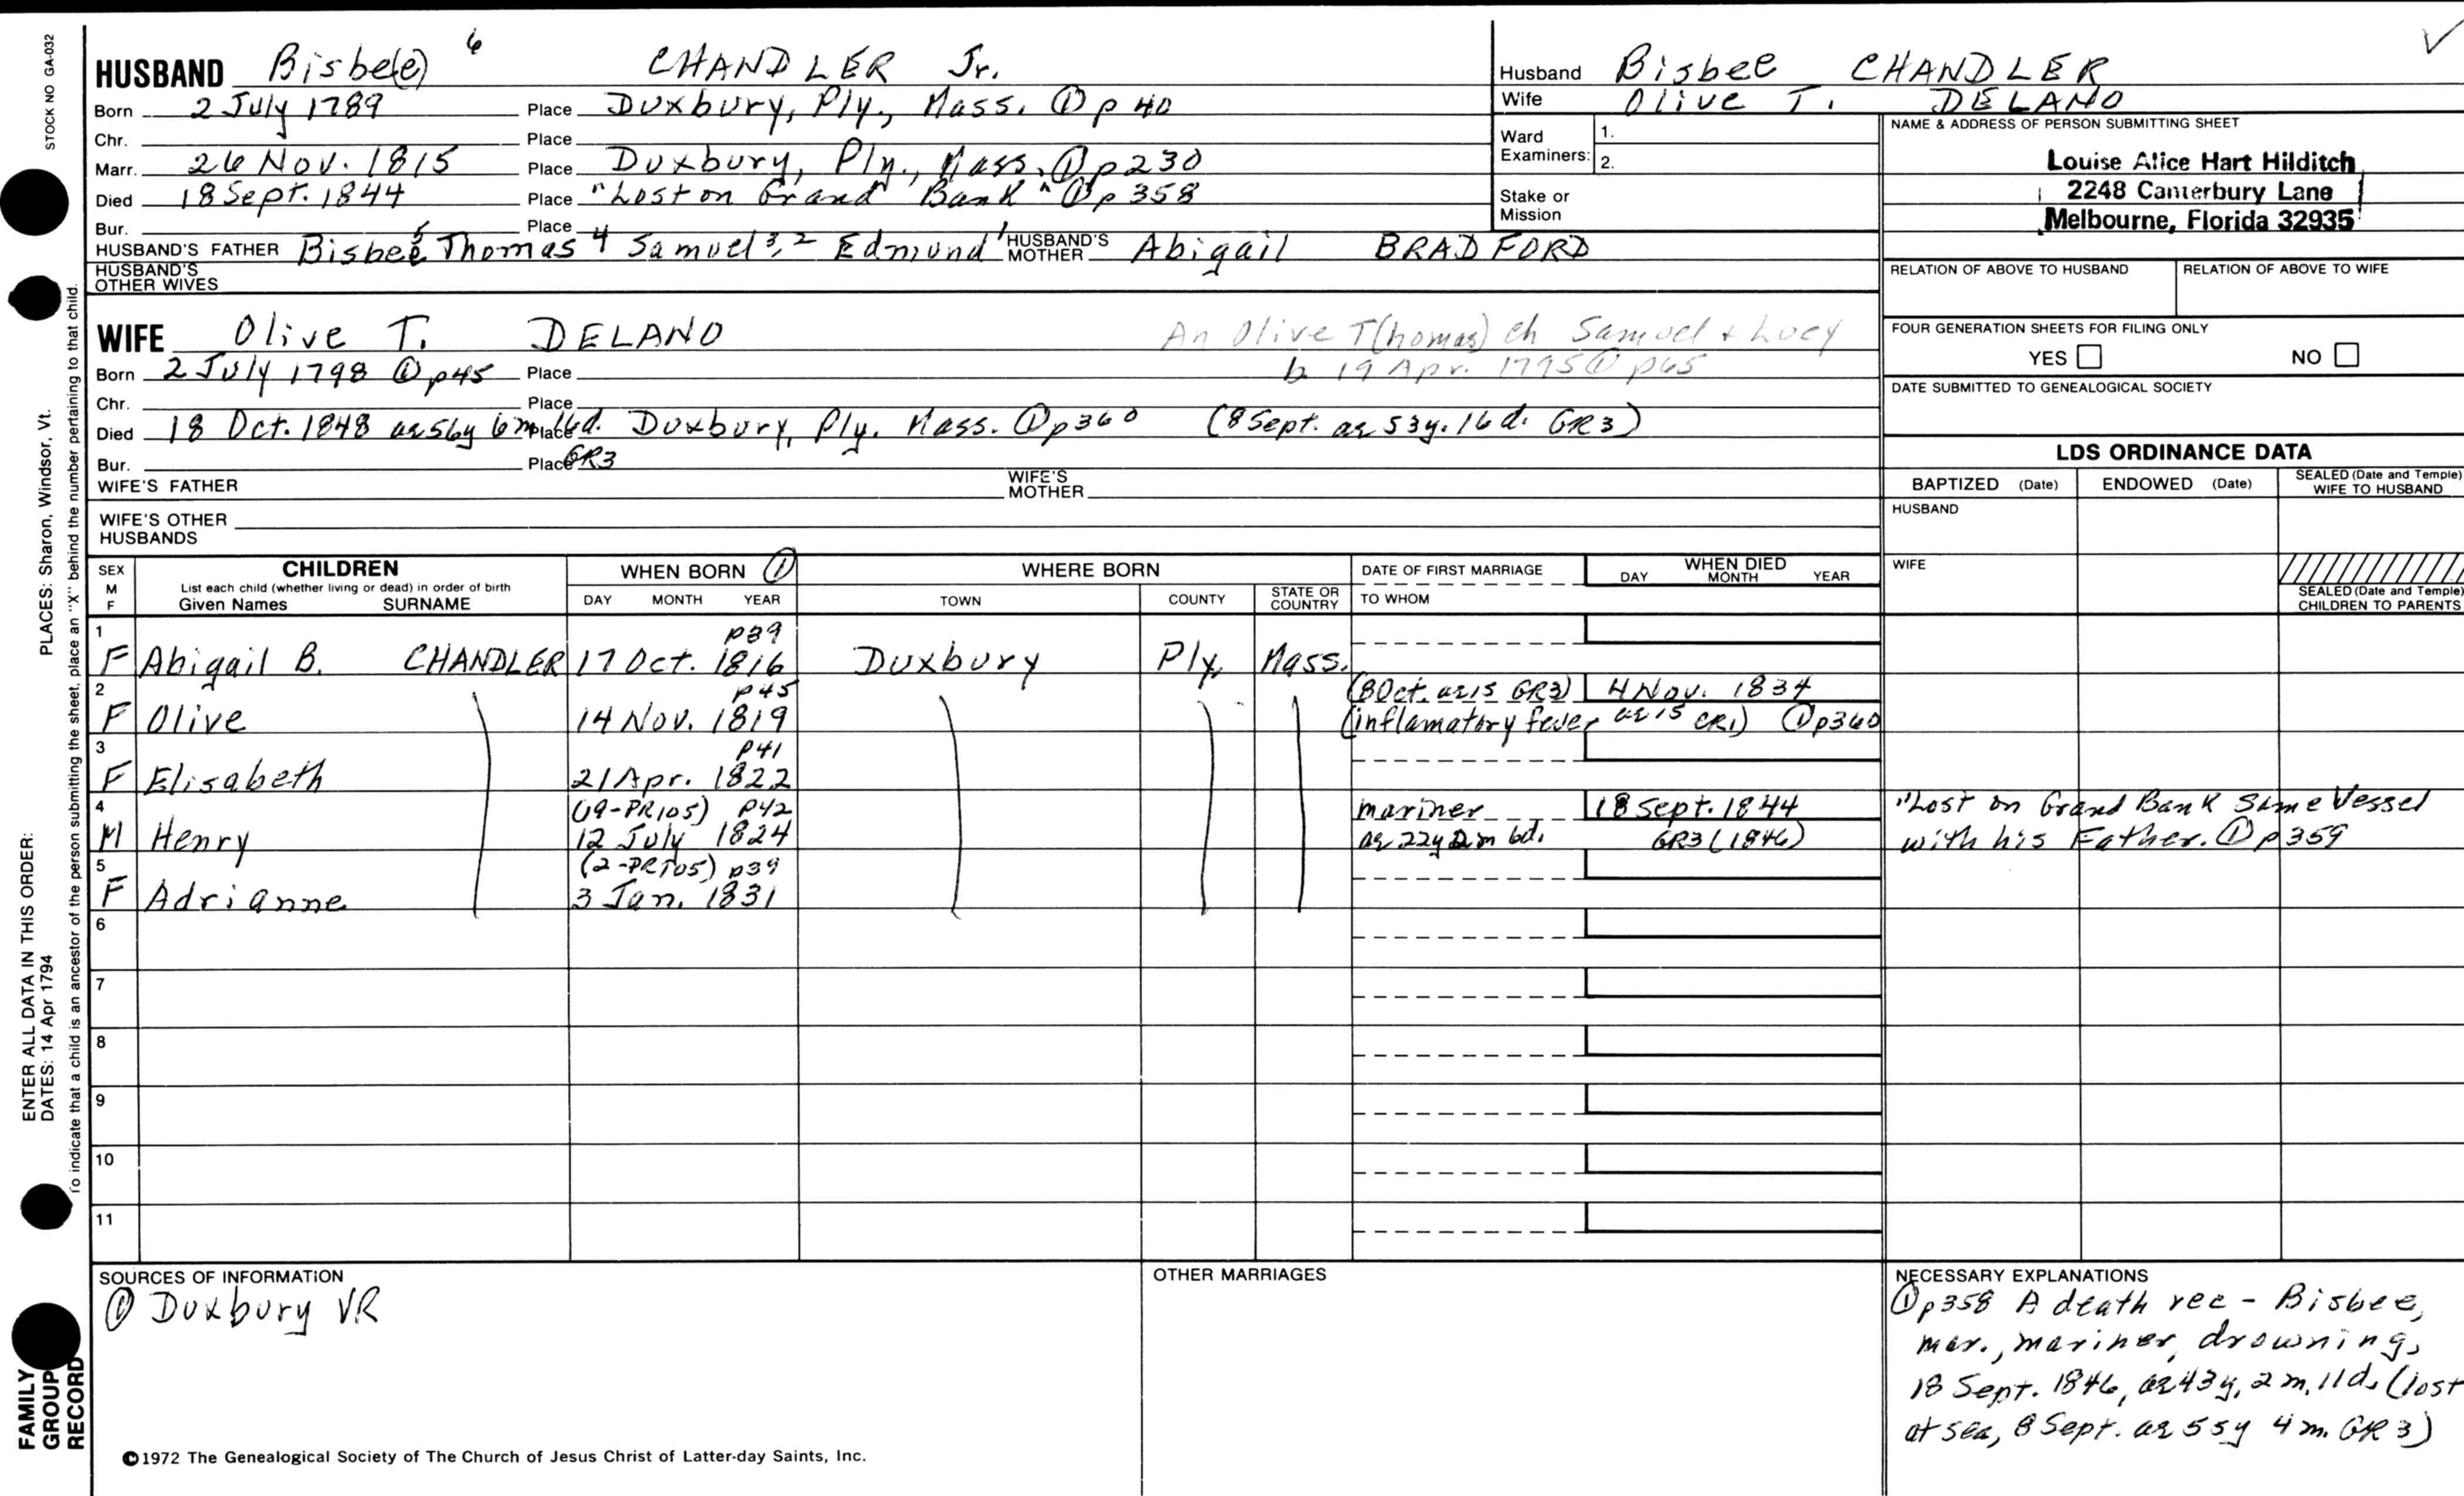 STOCK NO GA-032
PLACES: Sharon, Windsor, Vt.
ENTER ALL DATA IN THIS ORDER:
DATES: 14 Apr 1794
To indicate that a child is an ancestor of the person submitting the sheet, place an "X" behind the number pertaining to that child.
FAMILY GROUP RECORD
HUSBAND Bisbe(e) 6 CHANDLER Jr.
Born 2 July 1789 Place Duxbury, Ply., Mass. ① p 40
Chr. Place
Marr. 26 Nov. 1815 Place Duxbury, Ply., Mass. ① p 230
Died 18 Sept. 1844 Place "Lost on Grand Bank" ① p 358
Bur. Place
HUSBAND'S FATHER Bisbee 5 Thomas 4 Samuel 3, 2 Edmund 1 HUSBAND'S MOTHER Abigail BRADFORD
HUSBAND'S OTHER WIVES
WIFE Olive T. DELANO An Olive T(homas) ch Samuel + Lucy
Born 2 July 1798 ① p45 Place b 19 Apr. 1795 ① p65
Chr. Place
Died 18 Oct. 1848 6m 16d. Place Duxbury, Ply. Mass. ① p360 (8 Sept. ae 53y. 16d. GR3)
Bur. Place GR3
WIFE'S FATHER WIFE'S MOTHER
WIFE'S OTHER HUSBANDS
Husband Bisbee CHANDLER
Wife Olive T. DELANO
Ward Examiners: 1.
2.
Stake or Mission
NAME & ADDRESS OF PERSON SUBMITTING SHEET
Louise Alice Hart Hilditch
2248 Canterbury Lane
Melbourne, Florida 32935
RELATION OF ABOVE TO HUSBAND RELATION OF ABOVE TO WIFE
FOUR GENERATION SHEETS FOR FILING ONLY
YES NO
DATE SUBMITTED TO GENEALOGICAL SOCIETY
LDS ORDINANCE DATA
BAPTIZED (Date) ENDOWED (Date) SEALED (Date and Temple) WIFE TO HUSBAND
HUSBAND
WIFE
SEALED (Date and Temple) CHILDREN TO PARENTS
SEX M F CHILDREN WHEN BORN ① WHERE BORN DATE OF FIRST MARRIAGE WHEN DIED
List each child (whether living or dead) in order of birth
Given Names SURNAME DAY MONTH YEAR TOWN COUNTY STATE OR COUNTRY TO WHOM DAY MONTH YEAR
1 p39
F Abigail B. CHANDLER 17 Oct. 1816 Duxbury Ply. Mass.
2 p45 (8 Oct. ae 15 GR3) 4 Nov. 1834
F Olive 14 Nov. 1819 (inflamatory fever ae 15 CR1) ① p360
3 p41
F Elisabeth 21 Apr. 1822
4 (19-PR105) p42 mariner 18 Sept. 1844 "Lost on Grand Bank Same Vessel
M Henry 12 July 1824 ae 22y 2m 6d. GR3 (1846) with his Father. ① p359
5 (2-PR105) p39
F Adrianne 3 Jan. 1831
6
7
8
9
10
11
SOURCES OF INFORMATION
① Duxbury VR
OTHER MARRIAGES
NECESSARY EXPLANATIONS
① p358 A death rec - Bisbee,
mar., mariner, drowning,
18 Sept. 1846, ae 43y, 2m, 11d. (lost
at sea, 8 Sept. ae 55y 4m. GR3)
©1972 The Genealogical Society of The Church of Jesus Christ of Latter-day Saints, Inc.